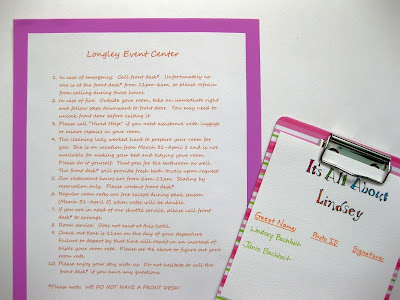 Longley Event Center
1. In case of emergency: Call front desk* Unfortunately no
one is at the front desk* from 11pm-6am, so please refrain
from calling during these hours.
2. In case of fire: Outside your room, take an immediate right
and follow steps downward to front door. You may need to
unlock front door before exiting it.
3. Please call "Hired Help" if you need assistance with luggage
or minor repairs in your room.
4. The cleaning lady worked hard to prepare your room for
you. She is on vacation from March 31-April 5 and is not
available for making your bed and tidying your room.
Please do it yourself. That goes for the bathroom as well.
The front desk* will provide fresh bath towels upon request
5. Our restaurant hours are from 6am-11pm. Seating by
reservation only. Please contact front desk*.
6. Regular room rates are free except during peak season
(March 31-April 5) when rates will be double.
7. If you are in need of our shuttle service, please call front
desk* to arrange.
8. Room service: Does not exist at this hotel.
9. Check out time is 11am on the day of your departure.
Failure to depart by that time will result in an increase of
triple your room rate. Please see #6 above to figure out your
room rate.
10. Please enjoy your stay with us. Do not hesitate to call the
front desk* if you have any questions.
*Please note: WE DO NOT HAVE A FRONT DESK!
It's All About
Lindsey
Guest Name: Photo ID Signature:
Lindsey
Janis